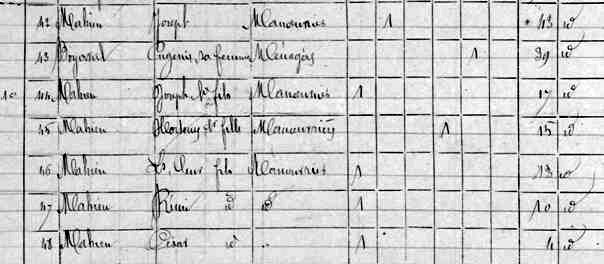 42 Mahieu Joseph Manouvrier 1 43 id
43 Eugénie sa femme Ménagère 1 39 id
10 44 Mahieu Joseph fils Manouvrier 1 17 id
45 Mahieu fille Manouvrière 1 15 id
46 Mahieu fils Manouvrier 1 13 id
47 Mahieu Rémi id id 1 10 id
48 Mahieu César id " 1 4 id